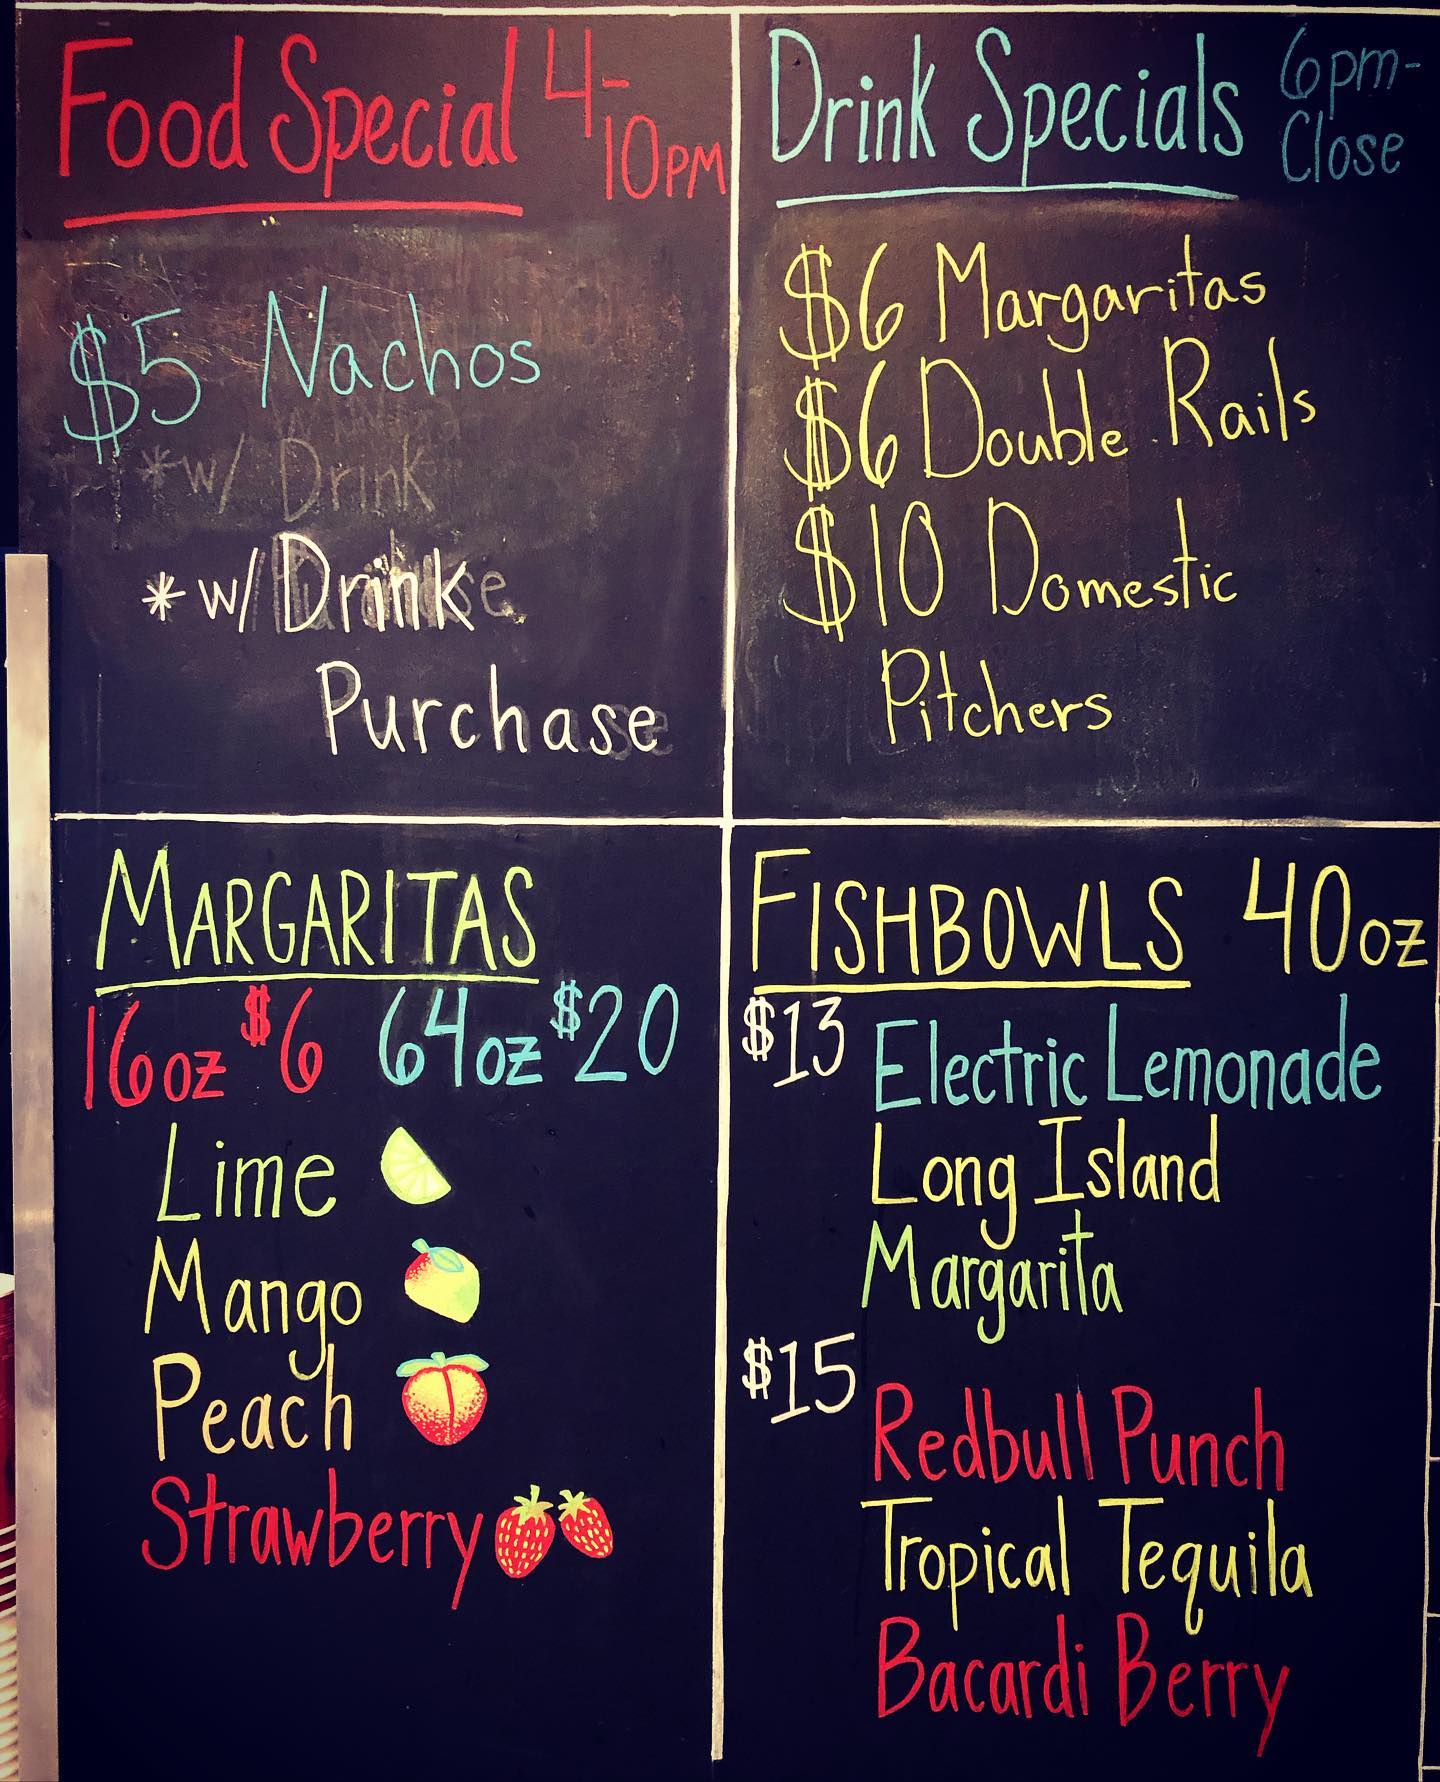 Food Special 4-
10PM
$5 Nachos
*w/ Drink
*w/ Drink
Purchase
Drink Specials 6pm-
Close
$6 Margaritas
$6 Double Rails
$10 Domestic
Pitchers
MARGARITAS
16oz $6 64oz $20
Lime
Mango
Peach
Strawberry
FISHBOWLS 40oz
$13 Electric Lemonade
Long Island
Margarita
$15
Redbull Punch
Tropical Tequila
Bacardi Berry